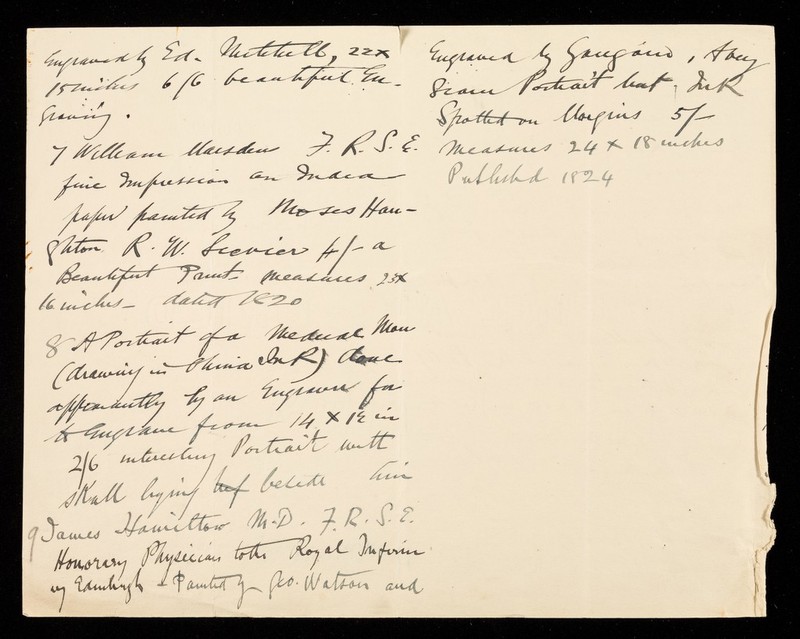 Engraved by Ed. Mitchell, 22x
15 inches 6/6 beautiful En-
graving.
7 William Marsden F. R. S. E.
fine Impression on India
paper painted by Moses Hau-
ghton R. W. Sievier 4/- a
Beautiful Print measures 23x
16 inches - dated 1820
8 A Portrait of a Medical Man
(drawing in China InK) done
apparently by an Engraver for
to Engrave from 14 x 12 in
2/6 interesting Portrait with
sKull lying beside him
9 James Hamilton M.D. F.R.S.E.
Honorary Physician to the Royal Infirm
ary Edinburgh - Painted by Geo. Watson and
Engraved by , A very
Portrait but InK
Spotted on Margins 5/-
measures 24 x 18 inches
Published 1824